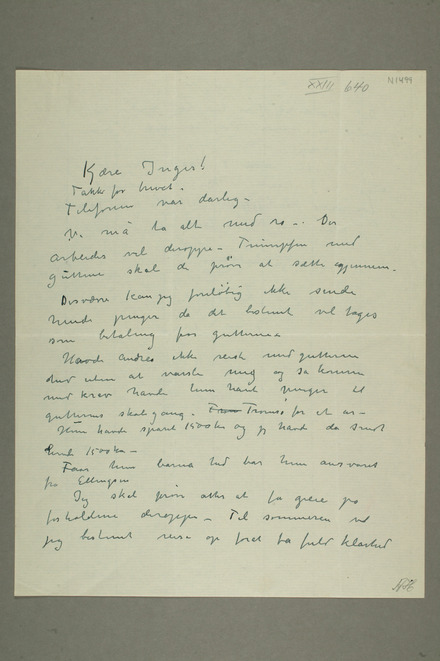 XXIII 640 N1444
Kære Inger!
Takk for brevet.
Telefonen var darlig –
Vi må ta alt med ro –. Der
arbeides vel deroppe – Triumpfen med
guttene skal de prøve at sætte igjennem.
Desværre kan jeg foreløbig ikke sende
hende penger da det bestemt vil tages
som betaling for guttene
Havde Andreas ikke reist med guttene
uten at varsle mig og så komme
med krav havde hun havt penger til
guttenes skolegang. Tromsø for et år –
Hun havde spart 1500 kr og jeg havde da sendt
hende 1500 kr –
Faar hun barna ned har hun ansvaret
fra Ellingsen
Jeg skal prøve atter at få greie på
forholdene deroppe – Til sommeren vil
jeg bestemt reise op for at få fuld klarhed